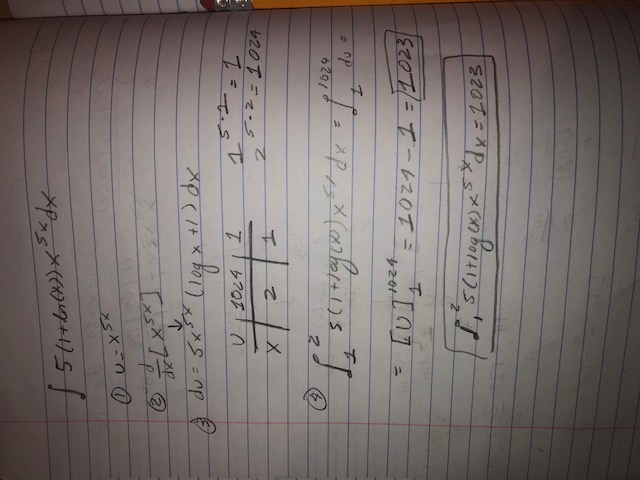 ∫ 5(1+ln(x))x^5x dx
① u = x^5x
② d/dx [x^5x]
③ du = 5x^5x (log x + 1) dx
U | 1024 | 1
X | 2 | 1
1^5·1 = 1
2^5·2 = 1024
④ ∫_1^2 5(1+log(x))x^5x dx = ∫_1^1024 du =
= [U]_1^1024 = 1024 - 1 = 1023
∫_1^2 5(1+log(x))x^5x dx = 1023